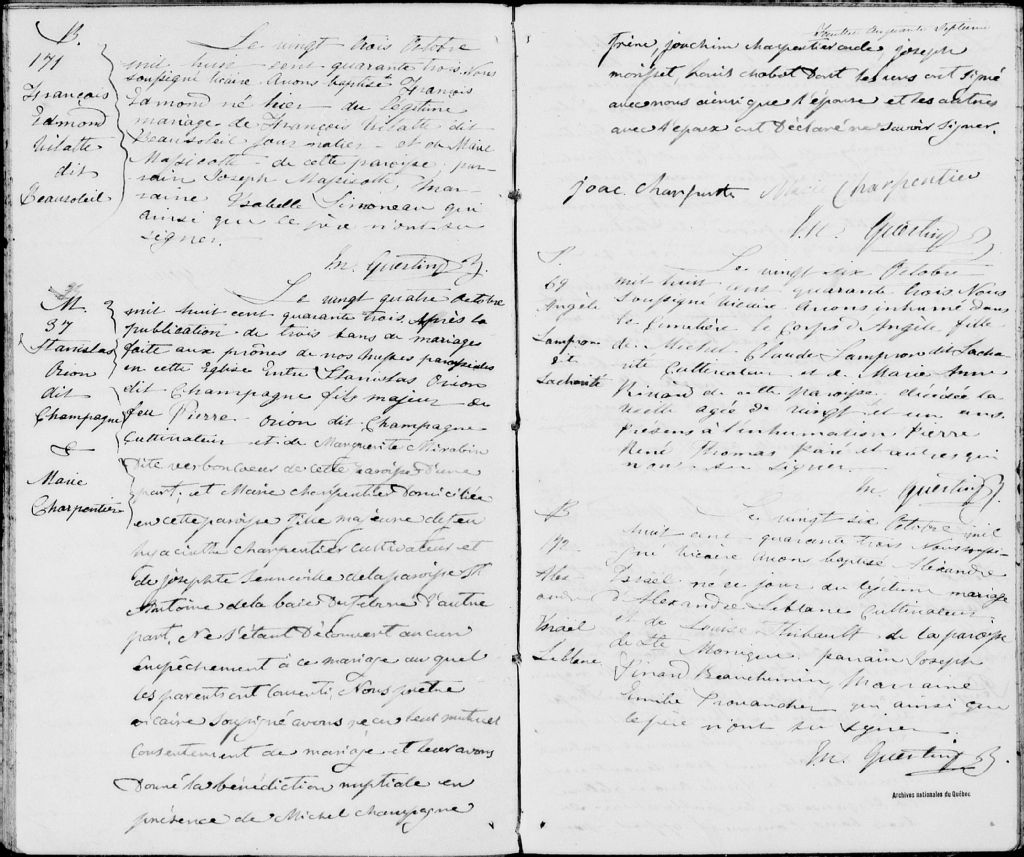 B.
171
François
Edmond
Vilatte
dit
Beausoleil
Le vingt trois Octobre
mil huit cent quarante trois Nous
soussigné vicaire avons baptisé François
Edmond né hier du légitime
mariage de François Vilatte dit
Beausoleil journalier et de Marie
Massicotte de cette paroisse. par-
rain Joseph Massicotte, mar-
raine Isabelle Simoneau qui
ainsi que le père n'ont su
signer.
M.
37
Stanislas
Orion
dit
Champagne
&
Marie
Charpentier
Le vingt quatre Octobre
mil huit cent quarante trois. Après la
publication de trois bans de mariages
faite aux prônes de nos messes paroissiales
en cette Eglise Entre Stanislas Orion
dit Champagne fils majeur de
feu Pierre Orion dit Champagne
Cultivateur et de Marguerite
dite de cette paroisse d'une
part, et Marie Charpentier Domiciliée
en cette paroisse fille majeure de feu
hyacinthe Charpentier cultivateur et
de josephte Senneville de la paroisse St
Antoine de la baie Dufebvre d'autre
part, Ne s'étant Découvert aucun
empêchement à ce mariage au quel
les parents ont consenti, Nous prêtre
vicaire soussigné avons reçu leur mutuel
Consentement de mariage et leur avons
Donné la bénédiction nuptiale en
présence de Michel champagne
frère, joachim charpentier oncle, joseph
morisset, Louis chabot Dont les uns ont signé
avec nous ainsi que l'épouse et les autres
avec l'epoux ont Déclaré ne savoir signer.
joac Charpentie Marie Charpentier
S.
69
Angèle
Lampron
dit
Lacharité
Le vingt six Octobre
mil huit cent quarante trois Nous
soussigné vicaire avons inhumé dans
le cimetière le Corps d'Angèle fille
de Michel Claude Lampron dit Lacha-
rité Cultivateur et de Marie Anne
Pinard de cette paroisse décédée la
veille agée de vingt et un ans.
Présens à l'inhumation Pierre
René Thomas Paré et autres qui
n'ont su signer.
B.
172
Alex
andre
Israël
Leblanc
Le vingt six Octobre mil
huit cent quarante trois Nous sous-
igné vicaire avons baptisé Alexandre
Israël né ce jour du légitime mariage
d'Alexandre Leblanc Cultivateur
et de Louise Thibault de la paroisse
de Ste Monique. parrain Joseph
Pinard Beauchemin, Marraine
Emilie Provancher qui ainsi que
le père n'ont su signer.
Archives nationales du Québec